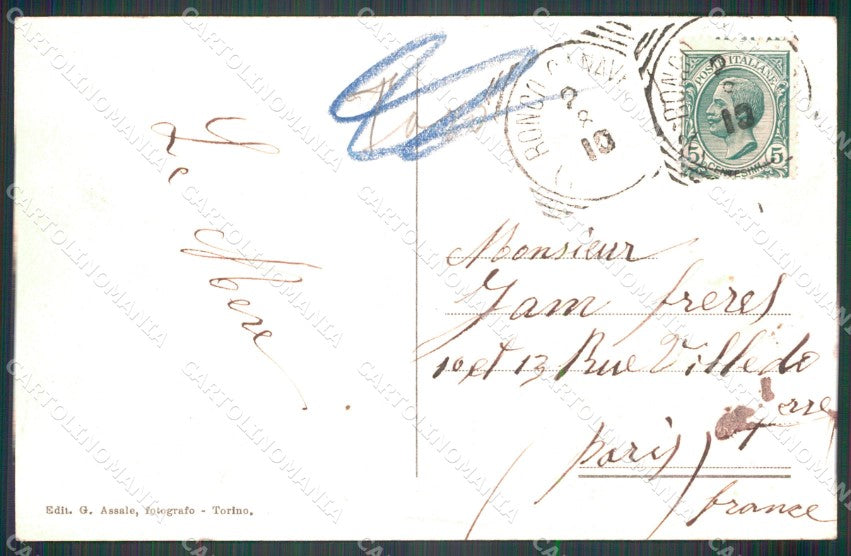 Le
Mere
RONCO CANAV
2
8
10
2
8
10
POSTE ITALIANE
5 CENTESIMI 5
Monsieur
Jam freres
10 et 13 Rue Villedo
Paris
france
Edit. G. Assale, fotografo - Torino.
CARTOLINOMANIA